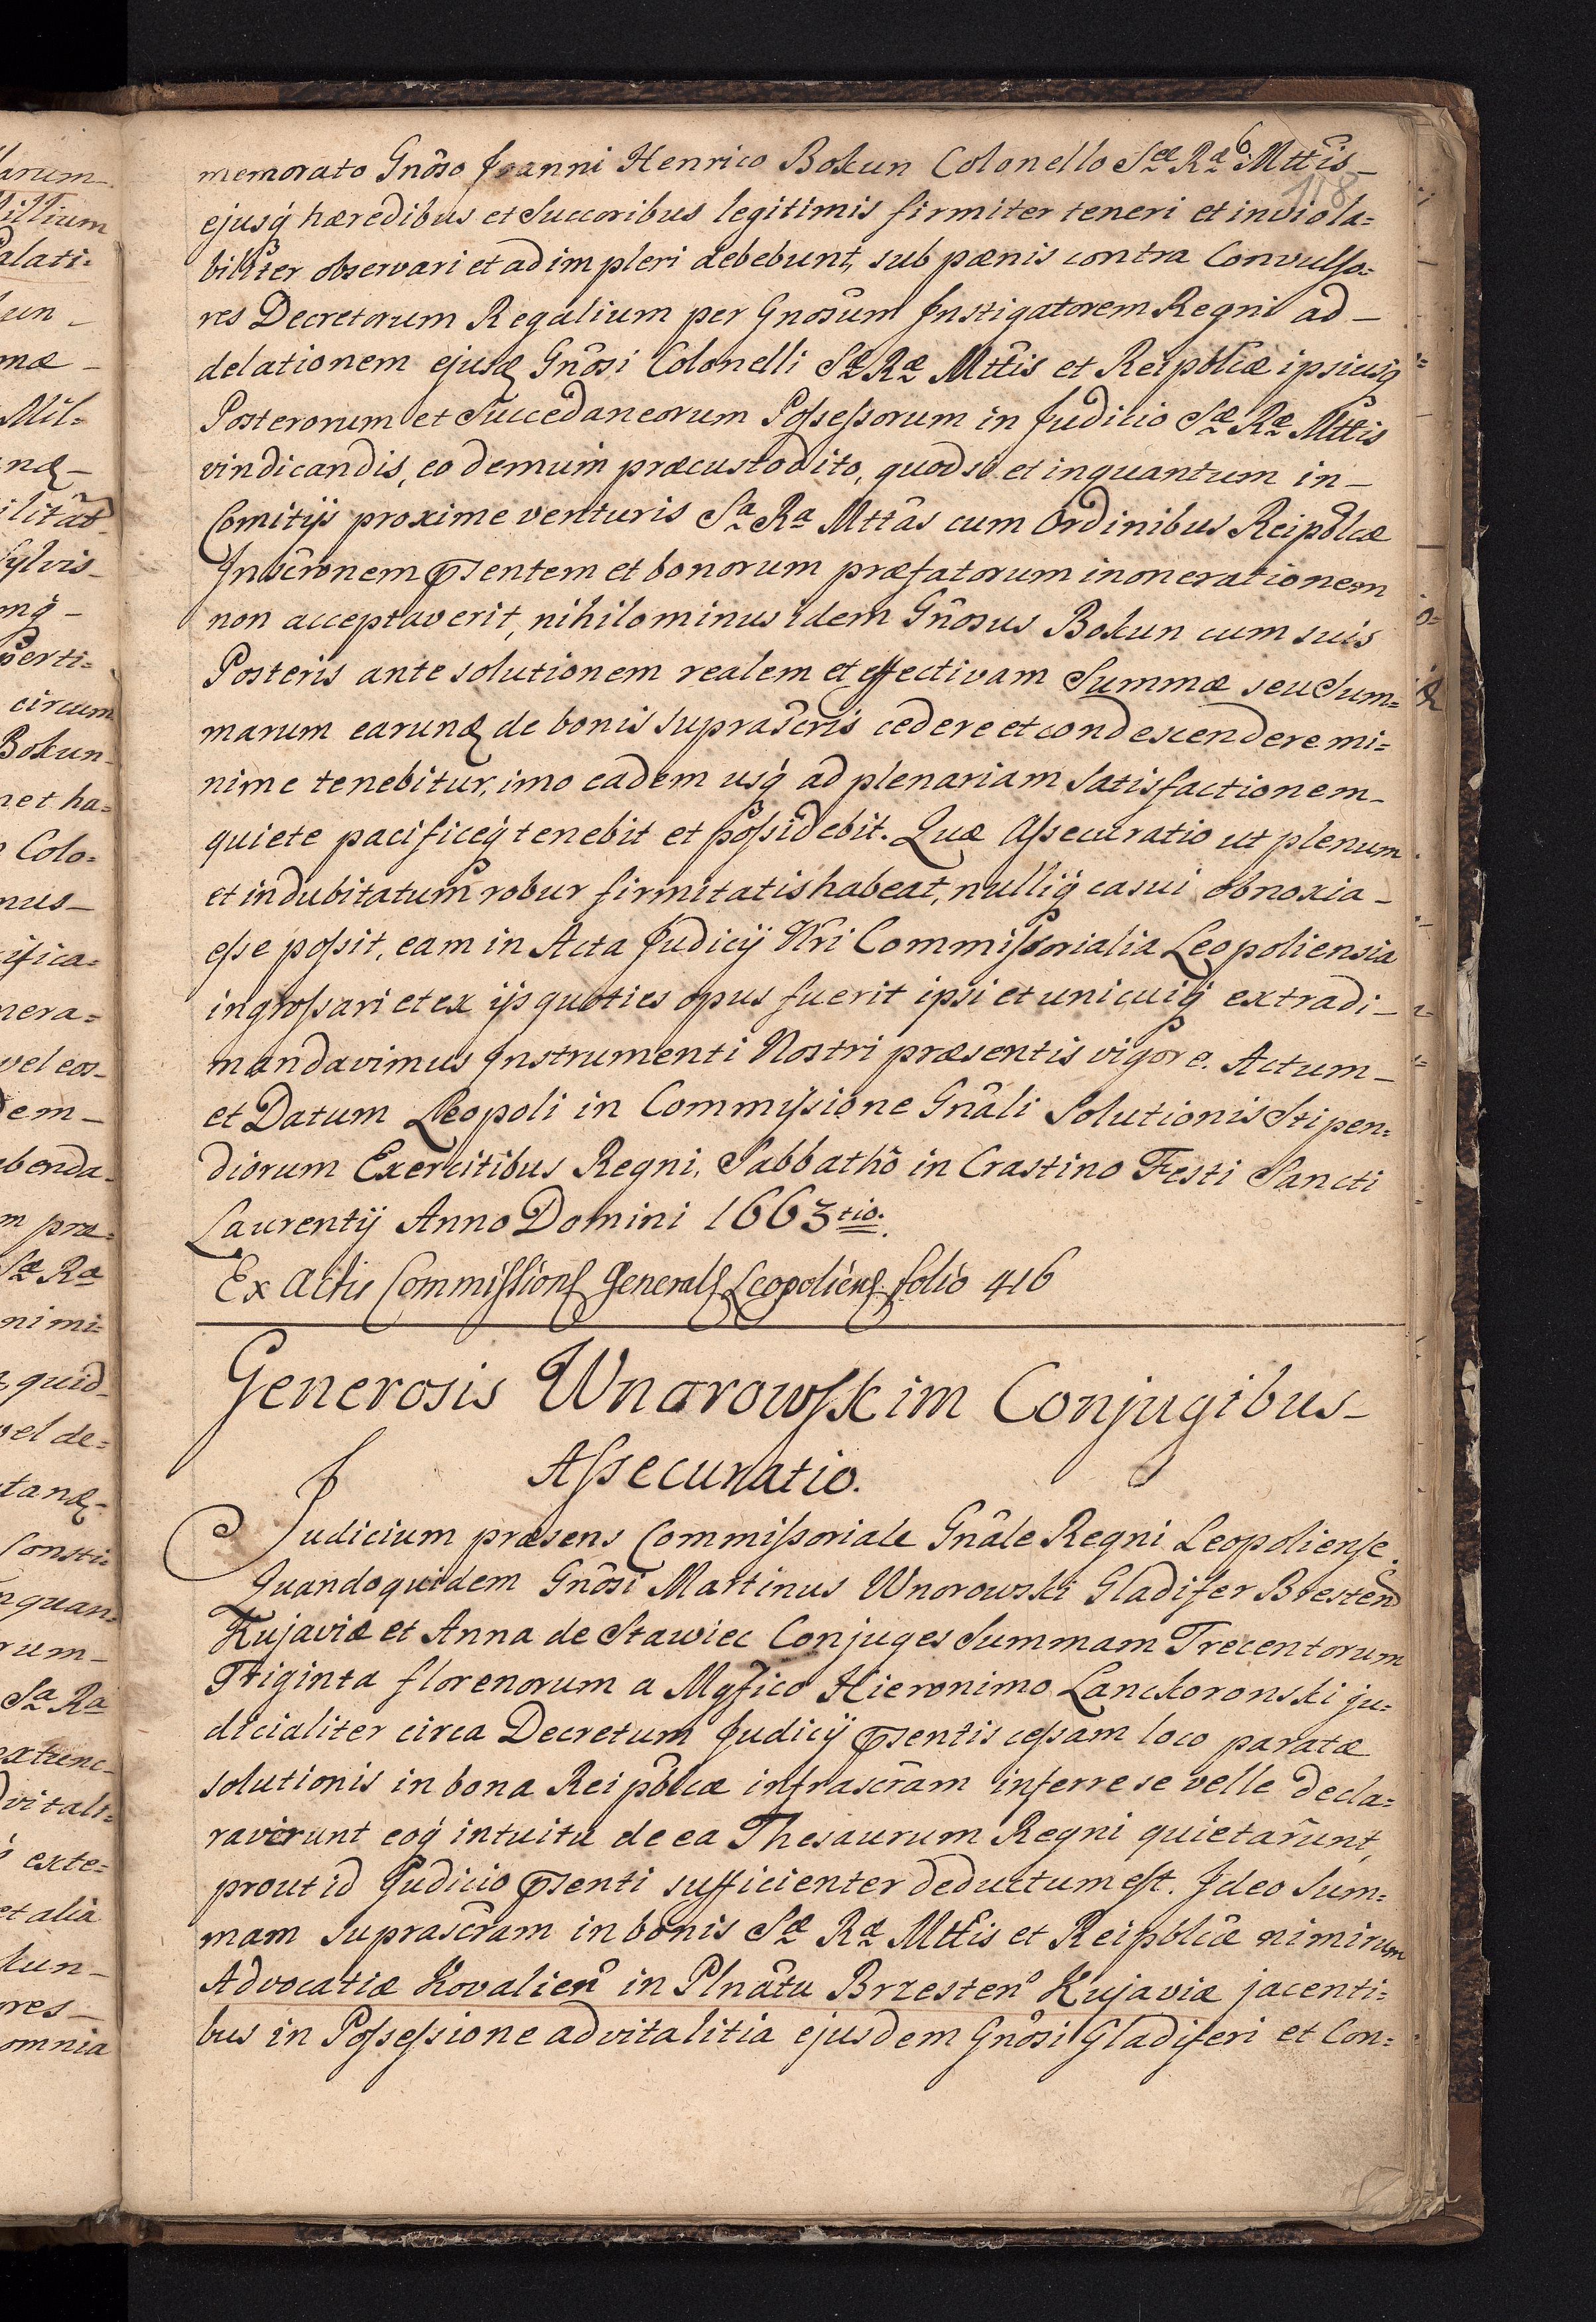 6.
118
memorato Gnoso Joanni Henrico Bokun Colonello Sæ Ræ Mttis
ejusq hæredibus et Succoribus legitimis firmiter teneri et inviola=
biliter observari et adimpleri debebunt, sub pænis contra Convulso=
res Decretorum Regalium per Gnosum Instigatorem Regni ad
delationem ejusq Gnosi Colonelli Sæ Ræ Mttis et Reipblicæ ipsiusq
Posterorum et Succedaneorum Possessorum in Judicio Sæ Ræ Mttis
vindicandis, eo demum præcustodito, quod si et inquantum in
Comitijs proxime venturis Sa Ra Mttas cum Ordinibus Reipblcæ
Inscrõnem psentem et bonorum præfatorum inonerationem
non acceptaverit, nihilominus idem Gnosus Bokun cum suis
Posteris ante solutionem realem et effectivam Summæ seu Sum=
marum earunq de bonis suprascris cedere et condescendere mi=
nime tenebitur, imo eadem usq ad plenariam satisfactionem
quiete pacificeq tenebit et possidebit. Quæ Assecuratio ut plenum
et indubitatum robur firmitatis habeat, nulliq casui obnoxia
esse possit, eam in Acta Judicij Nri Commissorialia Leopoliensia
ingrossari et ex ijs quoties opus fuerit ipsi et unicuiq extradi
mandavimus Instrumenti Nostri præsentis vigore. Actum
et Datum Leopoli in Commissione Gnali Solutionis Stipen=
diorum Exercitibus Regni, Sabbatho in Crastino Festi Sancti
Laurentij Anno Domini 1663tio.
Ex Actis Commissionis Generalis Leopoliens folio 416
Generosis Wnorowskim Conjugibus
Assecuratio.
Judicium præsens Commissoriale Gnale Regni Leopoliense.
Quandoquidem Gnosi Martinus Wnorowski Gladifer Bresten
Kujaviæ et Anna de Stawiec Conjuges Summam Trecentorum
Triginta florenorum a Mgfico Hieronimo Lanckoronski ju=
dicialiter circa Decretum Judicij psentis cessam loco paratæ
solutionis in bona Reipblcæ infrascram inferre se velle decla=
raverunt eoq intuitu de ea Thesaurum Regni quietarunt,
prout id Judicio psenti sufficienter deductum est. Ideo Sum=
mam suprascram in bonis Sæ Ræ Mttis et Reipblicæ nimirum
Advocatiæ Kovalien in Plnatu Brzesten Kujaviæ jacenti=
bus in Possessione advitalitia ejusdem Gnosi Gladiferi et Con=